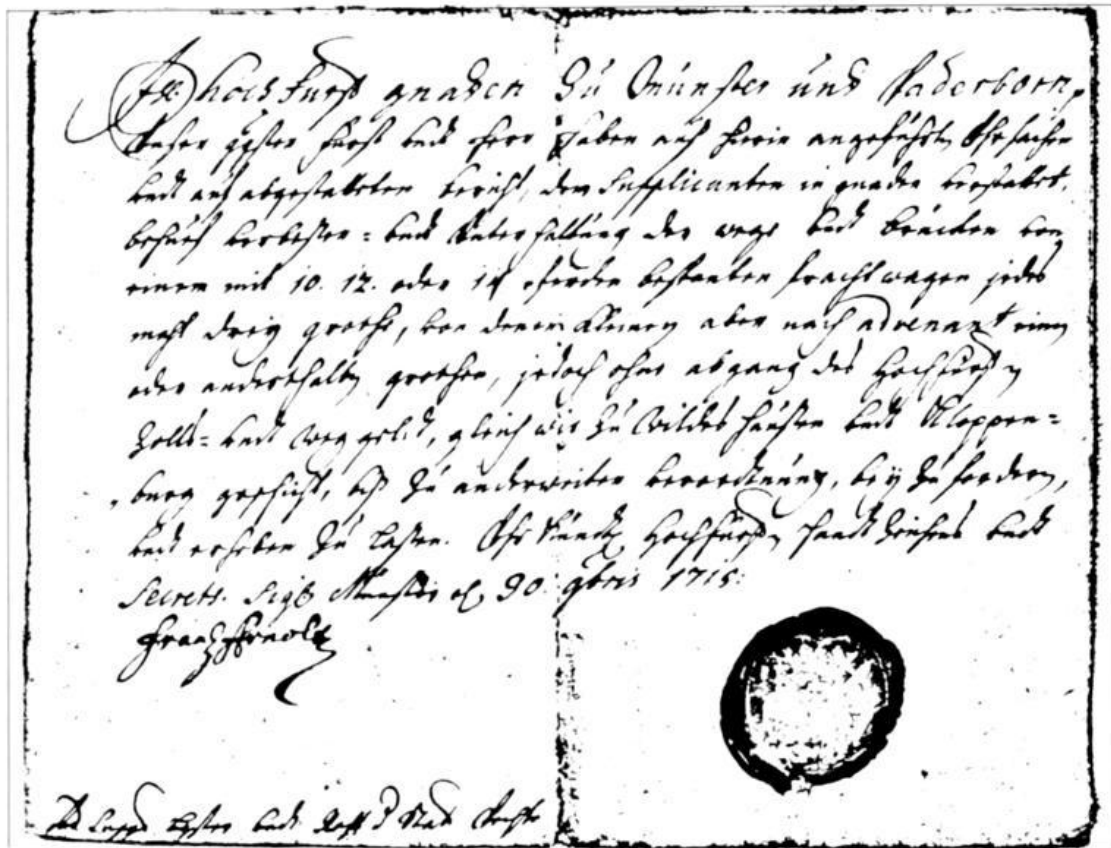 Ihre hochfürst gnaden zu Münster und Paderborn,
Unser ggster fürst undt Herr haben auß hierin angeführten Uhrsachen
undt auf abgestatteten bericht, dem Supplicanten in gnaden verstattet,
behuef verbesser= undt Unterhaltung der wege undt brücken von
einem mit 10. 12. oder 14 pferden bespanten frachtwagen jedes
mahl drey grothe, von denen kleinen aber nach advenant einen
oder anderthalben grothen, jedoch ohne abgang des Hochfürstn
Zolls= undt weggeldt, gleich wie zu Wildeshaußen undt Kloppen=
burg geschicht, biß zu anderweiter verordtnung, bey zu fordern,
undt erheben zu laßen. Uhrkundt Hochfürstn handtzeichens undt
Secrets. Sigl Münster d. 30 9bris 1715.
Frantz Arnoldt
undt Vechte